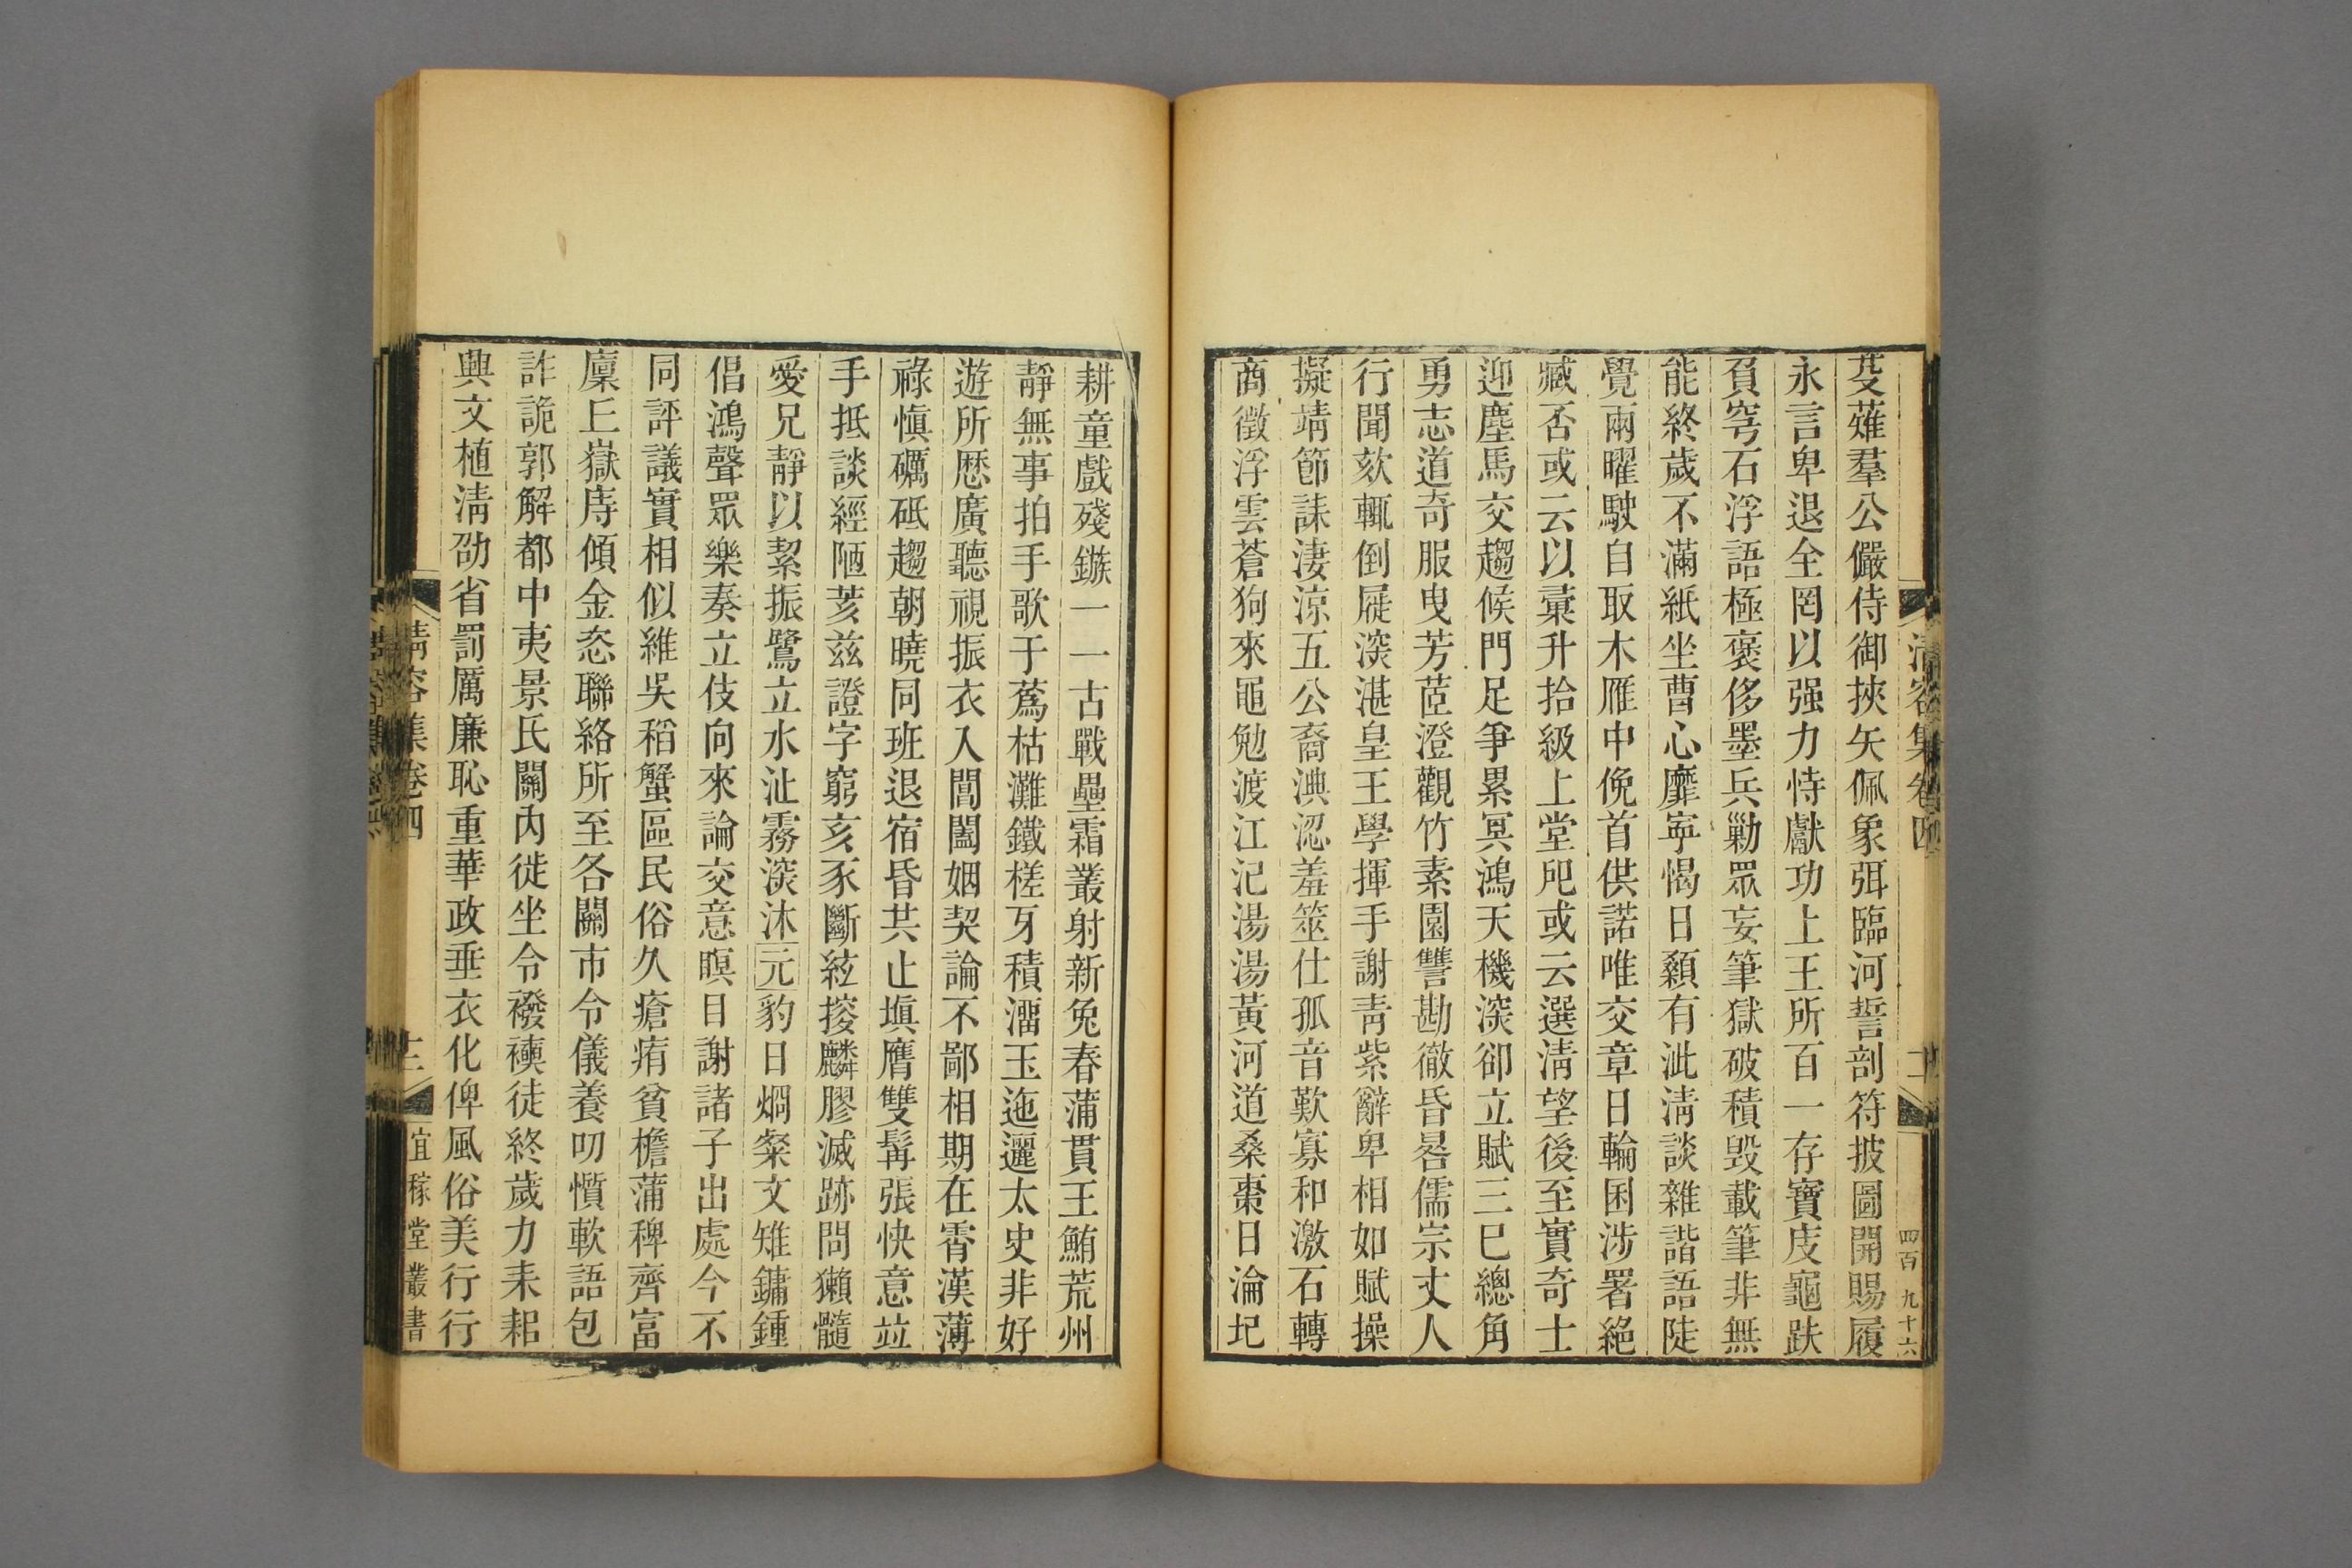 芟薙羣公儼侍御挾矢佩象弭臨河誓剖符披圖開賜履
永言卑退全罔以强力恃獻功上王所百一存寶庋龜趺
負穹石浮語極褒侈墨兵勦眾妄筆獄破積毀載筆非無
能終歲不滿紙坐曹心靡寧愒日顙有泚淸談雜諧語陡
覺兩曜駛自取木雁中俛首供諾唯交章日輪囷涉署絶
臧否或云以彙升拾級上堂戺或云選淸望後至實奇士
迎塵馬交趨候門足爭累冥鴻天機深卻立賦三巳總角
勇志道奇服曳芳茝澄觀竹素園讐勘徹昏晷儒宗丈人
行聞欬輒倒屣深湛皇王學揮手謝靑紫辭卑相如賦操
擬靖節誄淒涼五公裔淟涊羞筮仕孤音歎寡和激石轉
商徵浮雲蒼狗來黽勉渡江汜湯湯黃河道桑棗日淪圮
淸容集卷四
四百九十六
耕童戲殘鏃一一古戰壘霜叢射新兔春蒲貫王鮪荒州
靜無事拍手歌于蒍枯灘鐵槎牙積溜玉迤邐太史非好
遊所歷廣聽視振衣入閶闔姻契論不鄙相期在霄漢薄
祿愼礪砥趨朝曉同班退宿昏共止塤膺雙髯張快意竝
手抵談經陋荄茲證字窮亥豕斷絃接麟膠滅跡問獺髓
愛兄靜以絜振鷺立水沚霧深沐元豹日烱粲文雉鏞鍾
倡鴻聲眾樂奏立伎向來論交意瞑目謝諸子出處今不
同評議實相似維吳稻蟹區民俗久瘡痏貧檐蒲稗齊富
廩丘嶽庤傾金恣聯絡所至各關市令儀養叨懫軟語包
詐詭郭解都中夷景氏關內徙坐令襏襫徒終歲力耒耜
興文植淸劭省罰厲廉恥重華政垂衣化俾風俗美行行
淸容集卷四
宜稼堂叢書